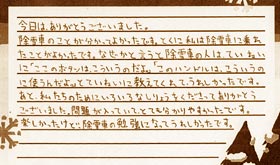 今日は、ありがとうございました。
除雪車のことが分かってよかったです。とくに私は除雪車に乗れ
たことがよかったです。なぜかと言うと除雪車の人は、ていねい
に「ここのボタンは、こういうのだよ。」「このハンドルは、こういうの
に使うんだよ。」とていねいに教えてくれてうれしかったです。
あと、私たちのためにいろいろなしりょうをくださってありがとう
ございました。問題が入っていてとても分かりやすかったです。
楽しかったけど、除雪車の勉強になってうれしかったです。